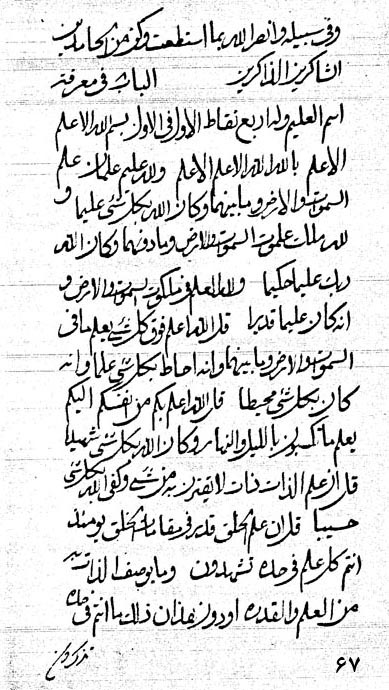 وفی سبیله وانصر الله بما استطعت وکن من الحامدین
الشاکرین الذاکرین الباب فی معرفة
اسم العلیم وله اربع نقاط الاول فی الاول بسم الله الاعلم
الاعلم بالله الله الاعلم الاعلم ولله علیم علمان علم
السموات والارض وما بینهما وکان الله بکل شیء علیما و
لله ملک علموت السموات والارض وما دونهما وکان الله
ربک علیما حکیما ولله العلم فی ملکوت السموات والارض و
انه کان علیما قدیرا قل الله اعلم فوق کل شیء یعلم ما فی
السموات والارض وما بینهما وانه احاط بکل شیء علما وانه
کان بکل شیء محیطا قل الله اعلم بکم من نفسکم الیکم
یعلم ما تکسبون باللیل والنهار وکان الله بکل شیء شهیدا
قل ان علم الذات ذات لا یقترن به من شیء وکفی الله بکل شیء
حسیبا قل ان علم الخلق قد فی مقامات الخلق یومئذ
انتم کل علم فی حده تشهدون وما یوصف الذات به
من العلم والقدرة او دون هذان ذلک ما انتم فی حده
تذکرون
۶۷